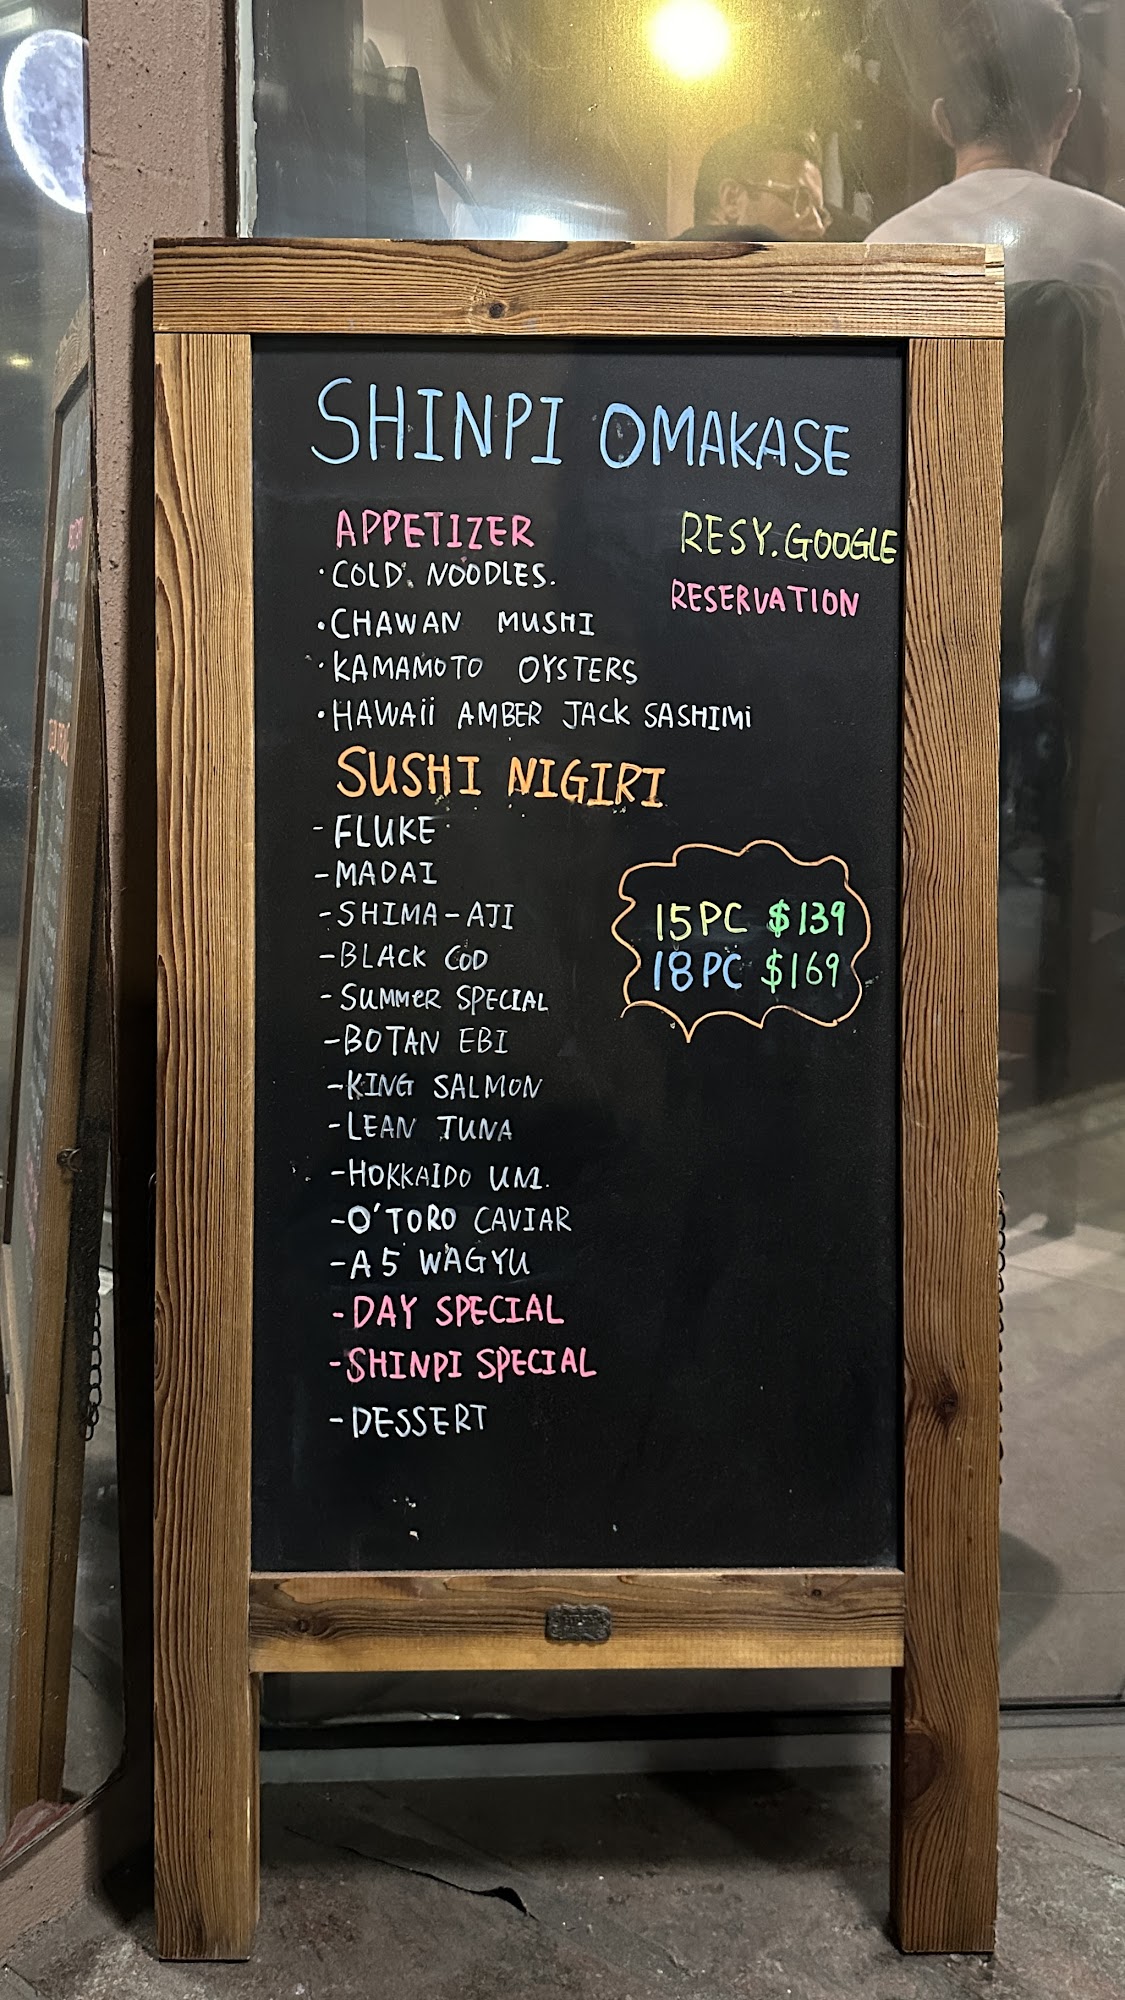 SHINPI OMAKASE
APPETIZER
· COLD. NOODLES.
· CHAWAN MUSHI
· KAMAMOTO OYSTERS
· HAWAii AMBER JACK SASHIMi
RESY. GOOGLE
RESERVATION
SUSHI NIGIRI
- FLUKE
- MADAI
- SHIMA-AJI
- BLACK COD
- SUMMER SPECIAL
- BOTAN EBI
- KING SALMON
- LEAN TUNA
- HOKKAIDO UNI.
- O'TORO CAVIAR
- A5 WAGYU
- DAY SPECIAL
- SHINPI SPECIAL
- DESSERT
15PC $139
18PC $169